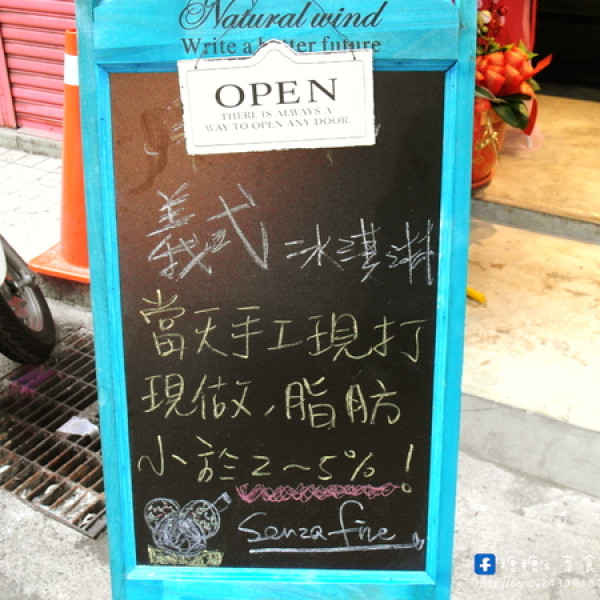 Natural wind
Write a better future
OPEN
THERE IS ALWAYS A
WAY TO OPEN ANY DOOR
義式冰淇淋
當天手工現打
現做,脂肪
小於2~5%!
Senza fine